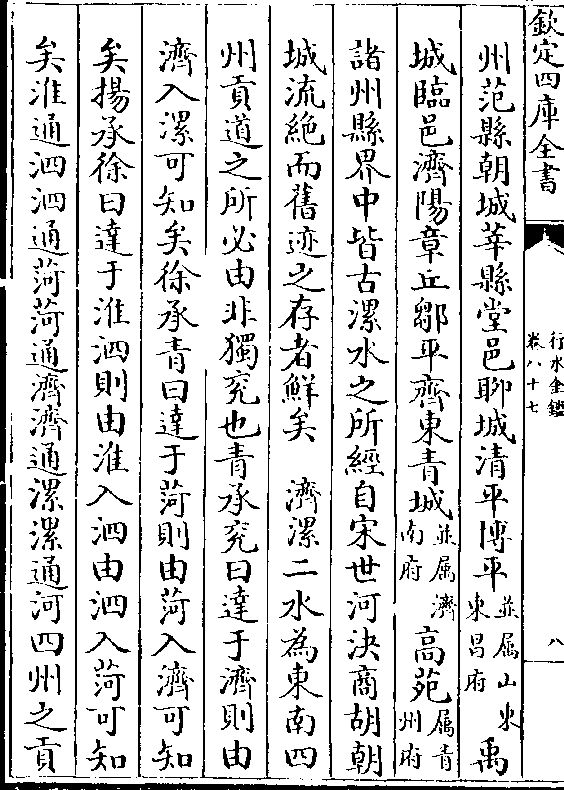 欽定四庫全書
行水金鑑
卷八十七
八
州范縣朝城莘縣堂邑聊城清平博平並属山東東昌府禹
城臨邑濟陽章丘鄒平齊東青城並属濟南府高苑属青州府
諸州縣界中皆古漯水之所經自宋世河決商胡朝
城流絶而舊迹之存者鮮矣　濟漯二水為東南四
州貢道之所必由非獨兖也青承兖曰達于濟則由
濟入漯可知矣徐承青曰達于菏則由菏入濟可知
矣揚承徐曰達于淮泗則由淮入泗由泗入菏可知
矣淮通泗泗通菏菏通濟濟通漯漯通河四州之貢